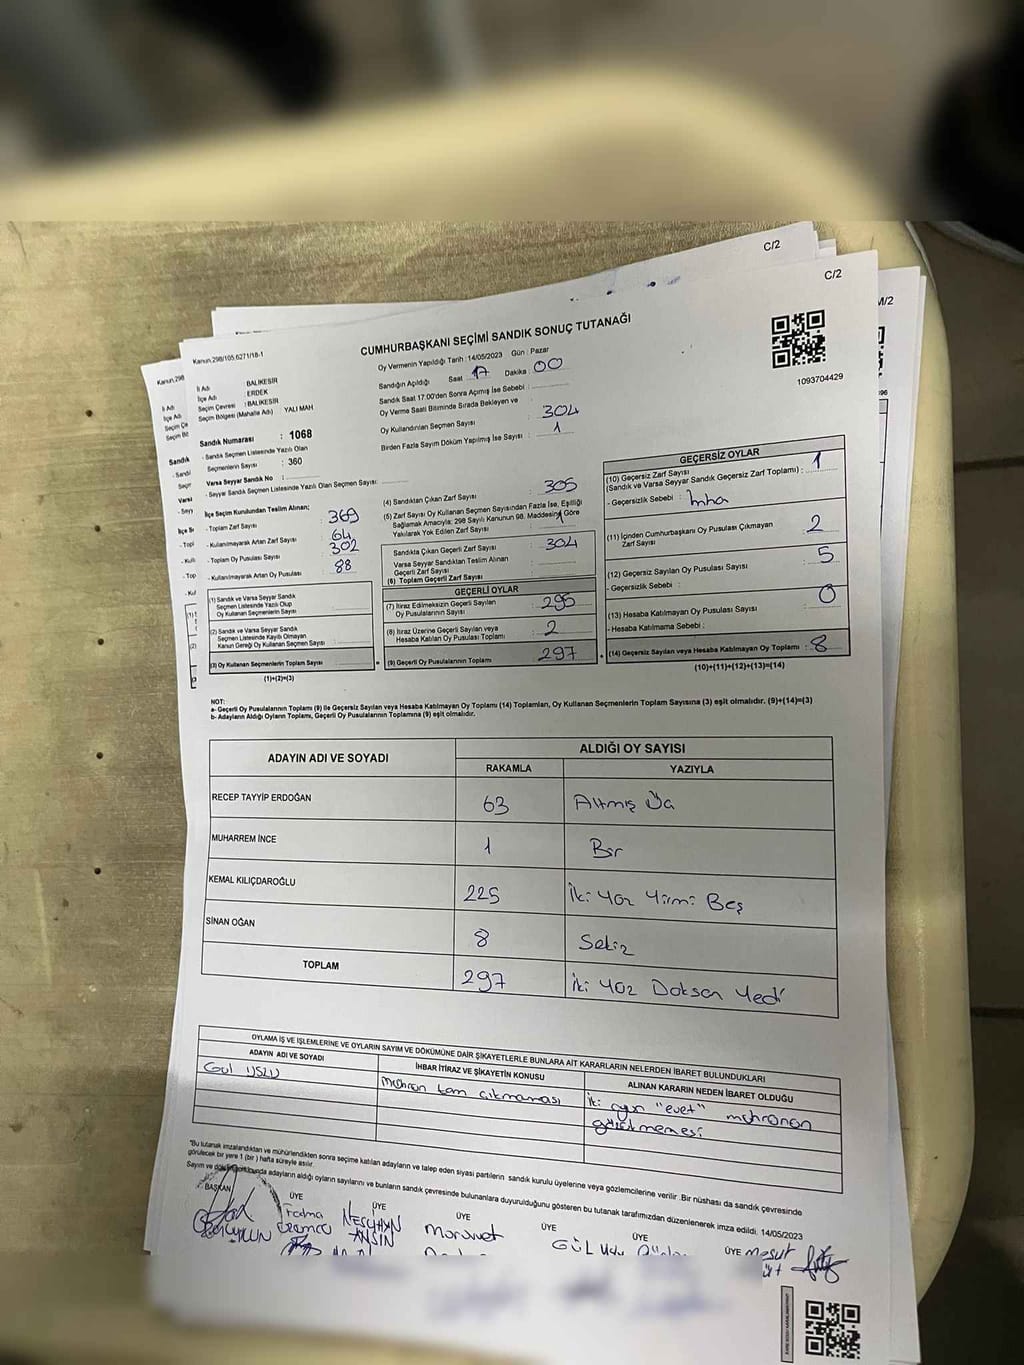 C/2
C/2
M/2
Kanun,298
Kanun,298/105,6271/18-1
CUMHURBAŞKANI SEÇİMİ SANDIK SONUÇ TUTANAĞI
1093704429
İl Adı : BALIKESİR
İlçe Adı : ERDEK
Seçim Çevresi : BALIKESİR
Seçim Bölgesi (Mahalle Adı) YALI MAH
Sandık Numarası : 1068
- Sandık Seçmen Listesinde Yazılı Olan
Seçmenlerin Sayısı : 360
Varsa Seyyar Sandık No :
- Seyyar Sandık Seçmen Listesinde Yazılı Olan Seçmen Sayısı:
İlçe Seçim Kurulundan Teslim Alınan;
- Toplam Zarf Sayısı : 369
- Kullanılmayarak Artan Zarf Sayısı : 64
- Toplam Oy Pusulası Sayısı : 302
- Kullanılmayarak Artan Oy Pusulası : 88
(1) Sandık ve Varsa Seyyar Sandık
Seçmen Listesinde Yazılı Olup
Oy Kullanan Seçmenlerin Sayısı
(2) Sandık ve Varsa Seyyar Sandık
Seçmen Listesinde Kayıtlı Olmayan
Kanun Gereği Oy Kullanan Seçmen Sayısı
(3) Oy Kullanan Seçmenlerin Toplam Sayısı
(1)+(2)=(3)
Oy Vermenin Yapıldığı Tarih : 14/05/2023 Gün : Pazar
Sandığın Açıldığı Saat : 17 Dakika : 00
Sandık Saat 17.00'den Sonra Açılmış İse Sebebi :
Oy Verme Saati Bitiminde Sırada Bekleyen ve
Oy Kullandırılan Seçmen Sayısı : 304
Birden Fazla Sayım Döküm Yapılmış İse Sayısı : 1
(4) Sandıktan Çıkan Zarf Sayısı : 305
(5) Zarf Sayısı Oy Kullanan Seçmen Sayısından Fazla İse, Eşitliği
Sağlamak Amacıyla; 298 Sayılı Kanunun 98. Maddesine Göre
Yakılarak Yok Edilen Zarf Sayısı : 1
Sandıkta Çıkan Geçerli Zarf Sayısı : 304
Varsa Seyyar Sandıktan Teslim Alınan
Geçerli Zarf Sayısı
(6) Toplam Geçerli Zarf Sayısı
GEÇERLİ OYLAR
(7) İtiraz Edilmeksizin Geçerli Sayılan
Oy Pusulalarının Sayısı : 295
(8) İtiraz Üzerine Geçerli Sayılan veya
Hesaba Katılan Oy Pusulası Toplamı : 2
(9) Geçerli Oy Pusulalarının Toplamı : 297
GEÇERSİZ OYLAR
(10) Geçersiz Zarf Sayısı
(Sandık ve Varsa Seyyar Sandık Geçersiz Zarf Toplamı) : 1
- Geçersizlik Sebebi : İmha
(11) İçinden Cumhurbaşkanı Oy Pusulası Çıkmayan
Zarf Sayısı : 2
(12) Geçersiz Sayılan Oy Pusulası Sayısı : 5
- Geçersizlik Sebebi :
(13) Hesaba Katılmayan Oy Pusulası Sayısı : 0
- Hesaba Katılmama Sebebi :
(14) Geçersiz Sayılan veya Hesaba Katılmayan Oy Toplamı : 8
(10)+(11)+(12)+(13)=(14)
NOT:
a- Geçerli Oy Pusulalarının Toplamı (9) ile Geçersiz Sayılan veya Hesaba Katılmayan Oy Toplamı (14) Toplamları, Oy Kullanan Seçmenlerin Toplam Sayısına (3) eşit olmalıdır. (9)+(14)=(3)
b- Adayların Aldığı Oyların Toplamı, Geçerli Oy Pusulalarının Toplamına (9) eşit olmalıdır.
ADAYIN ADI VE SOYADI ALDIĞI OY SAYISI
RAKAMLA YAZIYLA
RECEP TAYYİP ERDOĞAN 63 Altmış Üç
MUHARREM İNCE 1 Bir
KEMAL KILIÇDAROĞLU 225 İki Yüz Yirmi Beş
SİNAN OĞAN 8 Sekiz
TOPLAM 297 İki Yüz Doksan Yedi
OYLAMA İŞ VE İŞLEMLERİNE VE OYLARIN SAYIM VE DÖKÜMÜNE DAİR ŞİKAYETLERLE BUNLARA AİT KARARLARIN NELERDEN İBARET BULUNDUKLARI
ADAYIN ADI VE SOYADI İHBAR İTİRAZ VE ŞİKAYETİN KONUSU ALINAN KARARIN NEDEN İBARET OLDUĞU
Gül USLU mührün tam çıkmaması İki oyun "evet" mührünün
gözükmemesi
"Bu tutanak imzalandıktan ve mühürlendikten sonra seçime katılan adayların ve talep eden siyasi partilerin sandık kurulu üyelerine veya gözlemcilerine verilir. Bir nüshası da sandık çevresinde
görülecek bir yere 1 (bir) hafta süreyle asılır.
Sayım ve döküm sonucunda adayların aldığı oyların sayılarını ve bunların sandık çevresinde bulunanlara duyurulduğunu gösteren bu tutanak tarafımızdan düzenlenerek imza edildi. 14/05/2023
BAŞKAN ÜYE ÜYE ÜYE ÜYE ÜYE ÜYE
Fatma NESLİHAN Mürüvvet GÜL Uslu Mesut